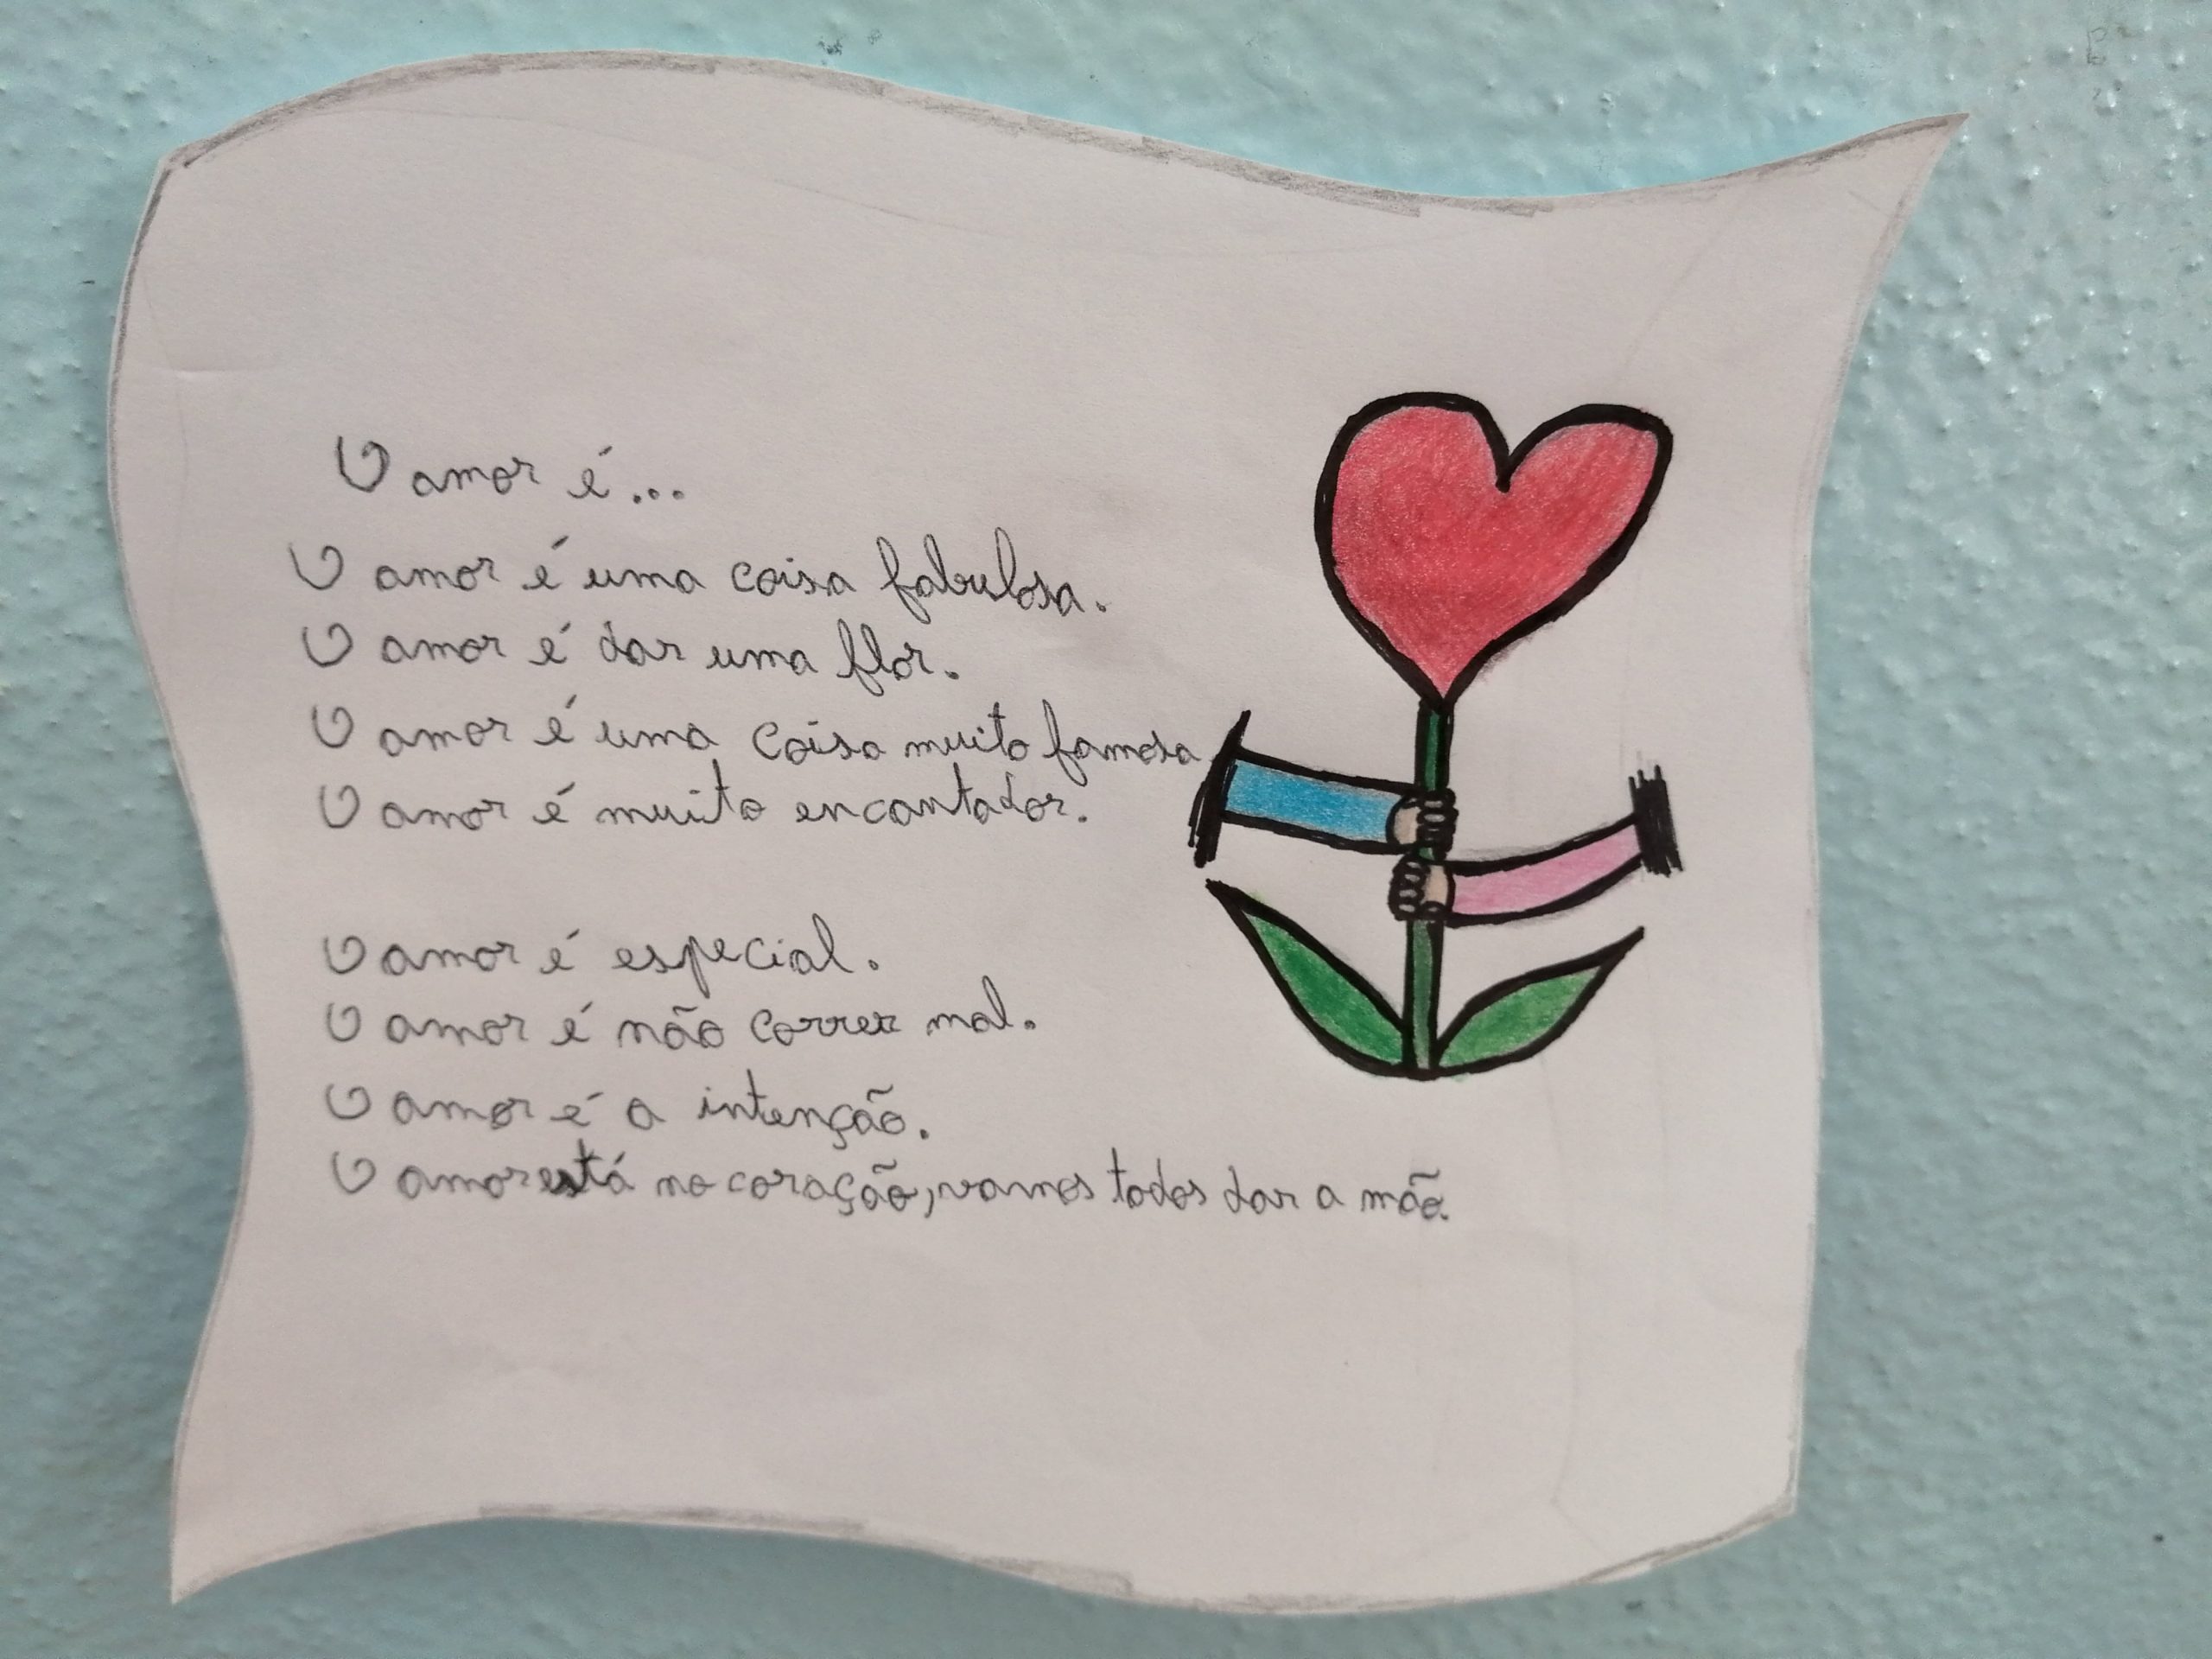 O amor é...
O amor é uma coisa fabulosa.
O amor é dar uma flor.
O amor é uma coisa muito famosa
O amor é muito encantador.
O amor é especial.
O amor é não correr mal.
O amor é a intenção.
O amor está no coração, vamos todos dar a mão.